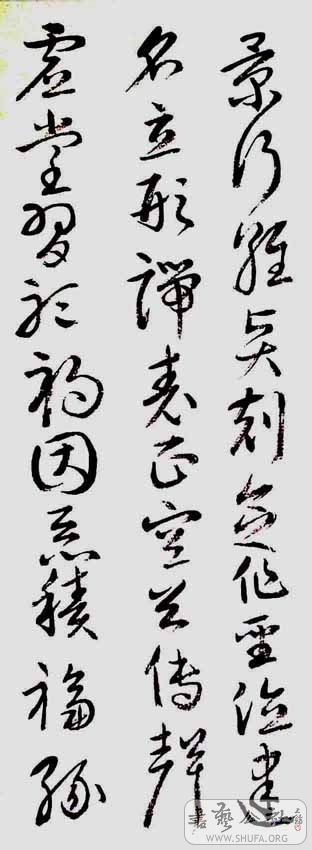 景行維賢剋念作聖德建
名立形端表正空谷傳聲
虛堂習聽禍因惡積福緣
WWW.SHUFA.ORG